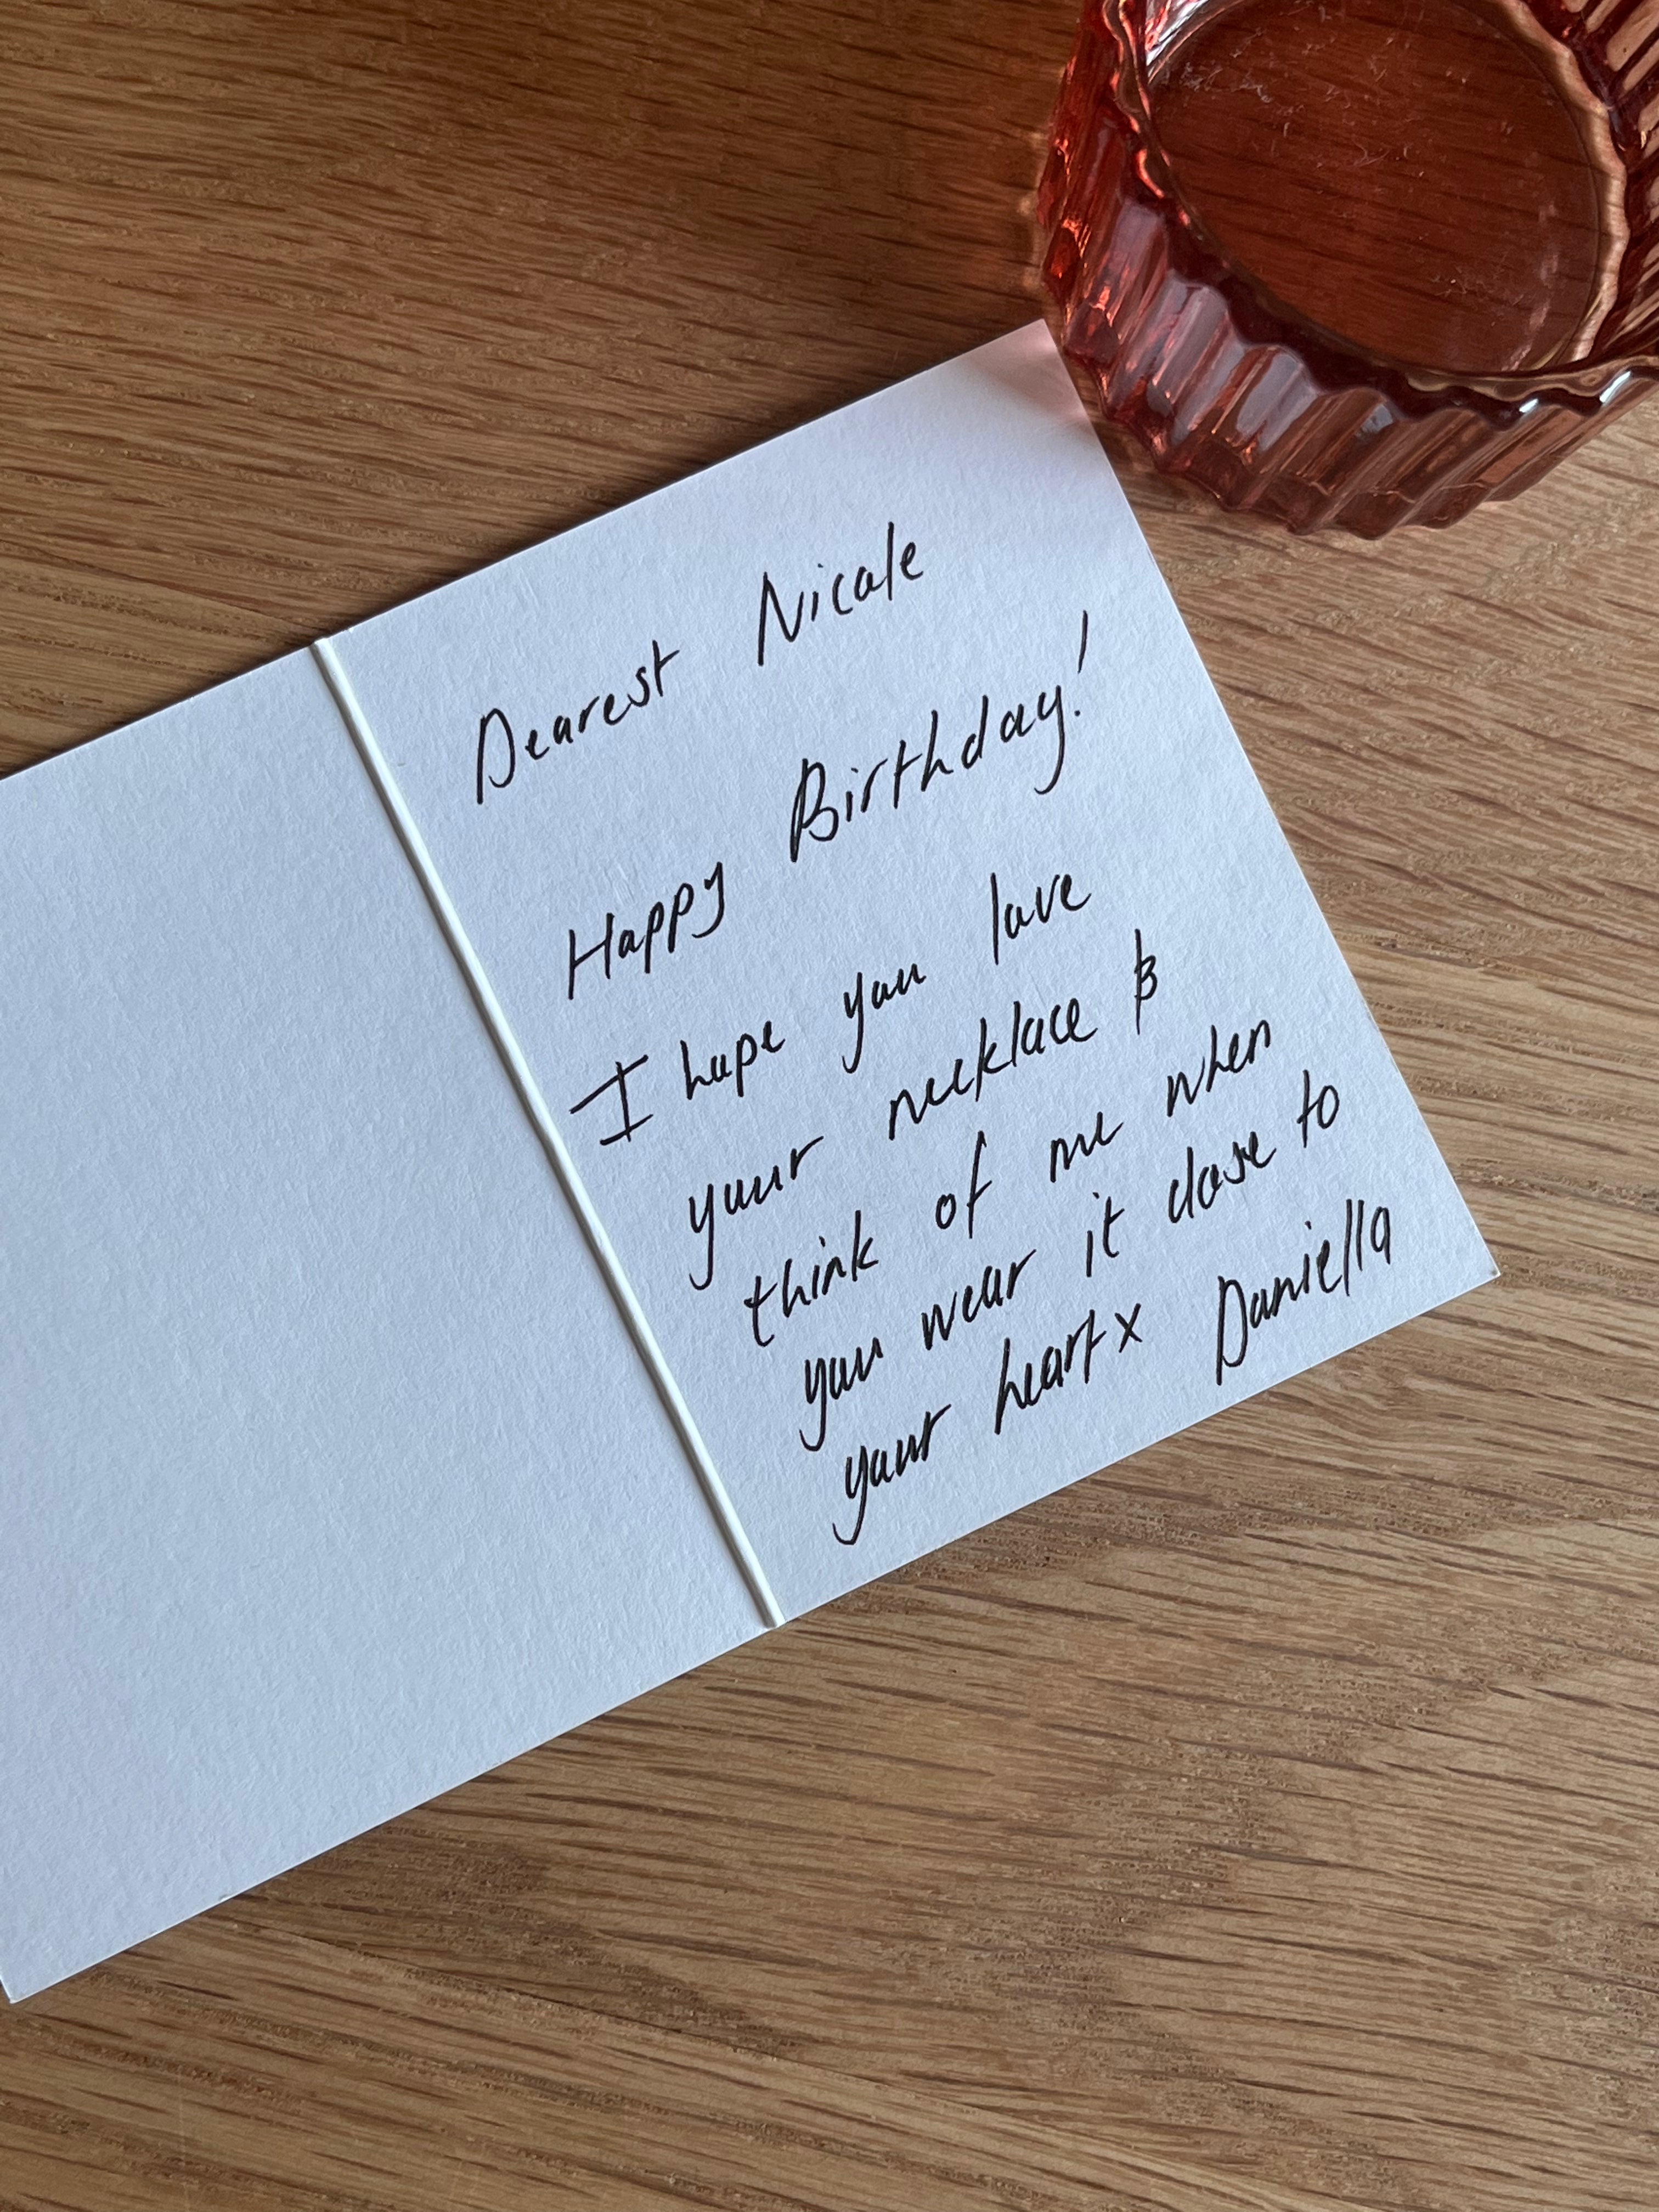 Dearest Nicole
Happy Birthday!
I hope you love
your necklace &
think of me when
you wear it close to
your heart x Daniella